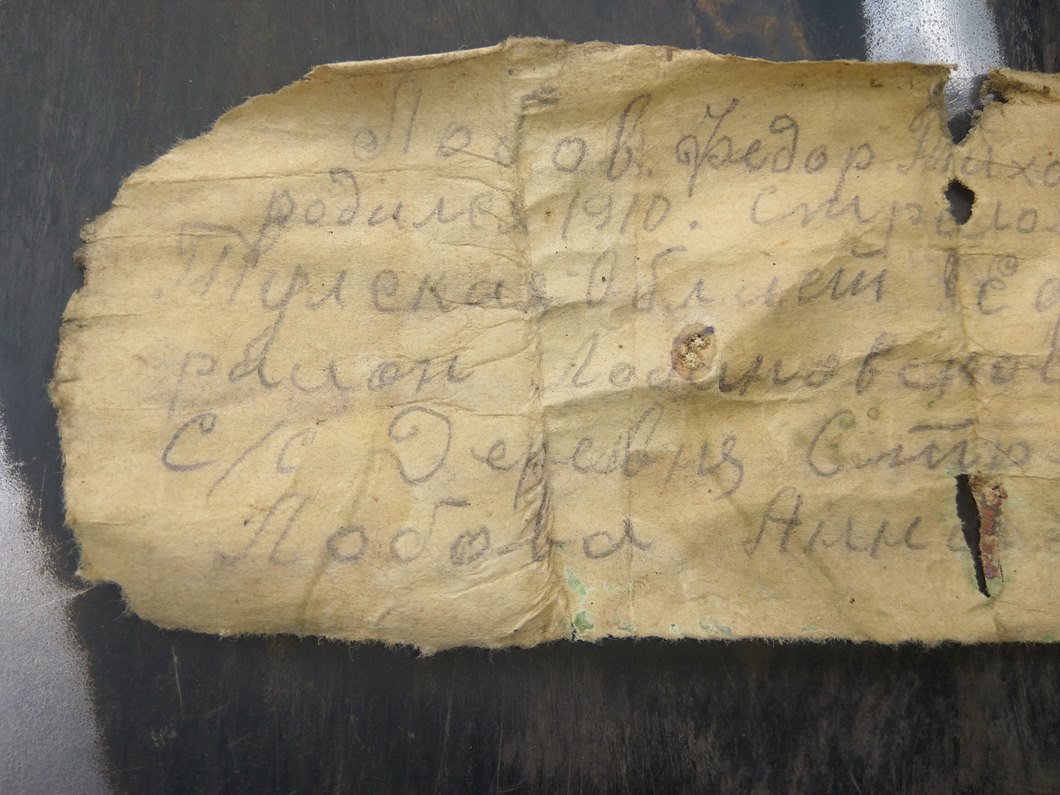 Лобов Федор Тихо
родился 1910. Стрело
Тулская област
район
С/С Деревня Стр
Лобова Анна